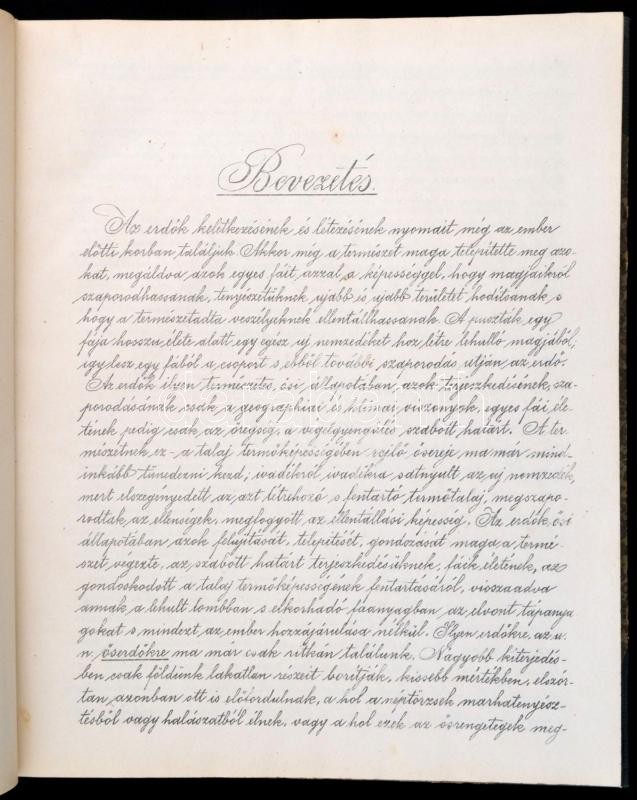 Bevezetés.
Az erdők keletkezésének és létezésének nyomait még az ember
előtti korban találjuk. Akkor még a természet maga telepitette meg azo-
kat, megáldva azok egyes fáit, azzal a képességgel, hogy magjaikról
szaporodhassanak, tenyészetüknek ujabb és ujabb területet hoditsanak s
hogy a természetadta veszélyeknek ellentállhassanak. A puszták egy
fája hosszu élete alatt egy egész, uj nemzedéket hoz létre lehulló magjából;
igy lesz egy fából a csoport s ebből további szaporodás utján, az erdő.
Az erdők ilyen természetes, ősi állapotában, azok terjeszkedésének, sza-
porodásának csak a geographiai és klimai viszonyok, egyes fái éle-
tének pedig csak az öregség, a végelgyengülés szabott határt. A ter-
mészetnek ez - a talaj termőképességében rejlő ősereje ma már mind-
inkább tünedezni kezd; ivadékról ivadékra satnyult az uj nemzedék,
mert elszegényedett az azt létrehozó s fentartó termőtalaj, megszapo-
rodtak az ellenségek, megfogyott az ellentállási képesség. Az erdők ősi
állapotában azok felujitását, telepitését, gondozását maga a termé-
szet végezte, az szabott határt terjeszkedésüknek, fáik életének, az
gondoskodott a talaj termőképességének fentartásáról, visszaadva
annak a lehult lombban s elkorhadó faanyagban az elvont tápanya
gokat s mindezt az ember hozzájárulása nélkül. Ilyen erdőkre, az u.
n. őserdőkre ma már csak ritkán találunk. Nagyobb kiterjedés-
ben csak földünk lakatlan részeit boritják, kissebb mértékben, elszór-
tan azonban ott is előfordulnak, a hol a néptörzsek marhatenyész-
tésből vagy halászatból élnek, vagy a hol ezek az ősrengetegek meg-